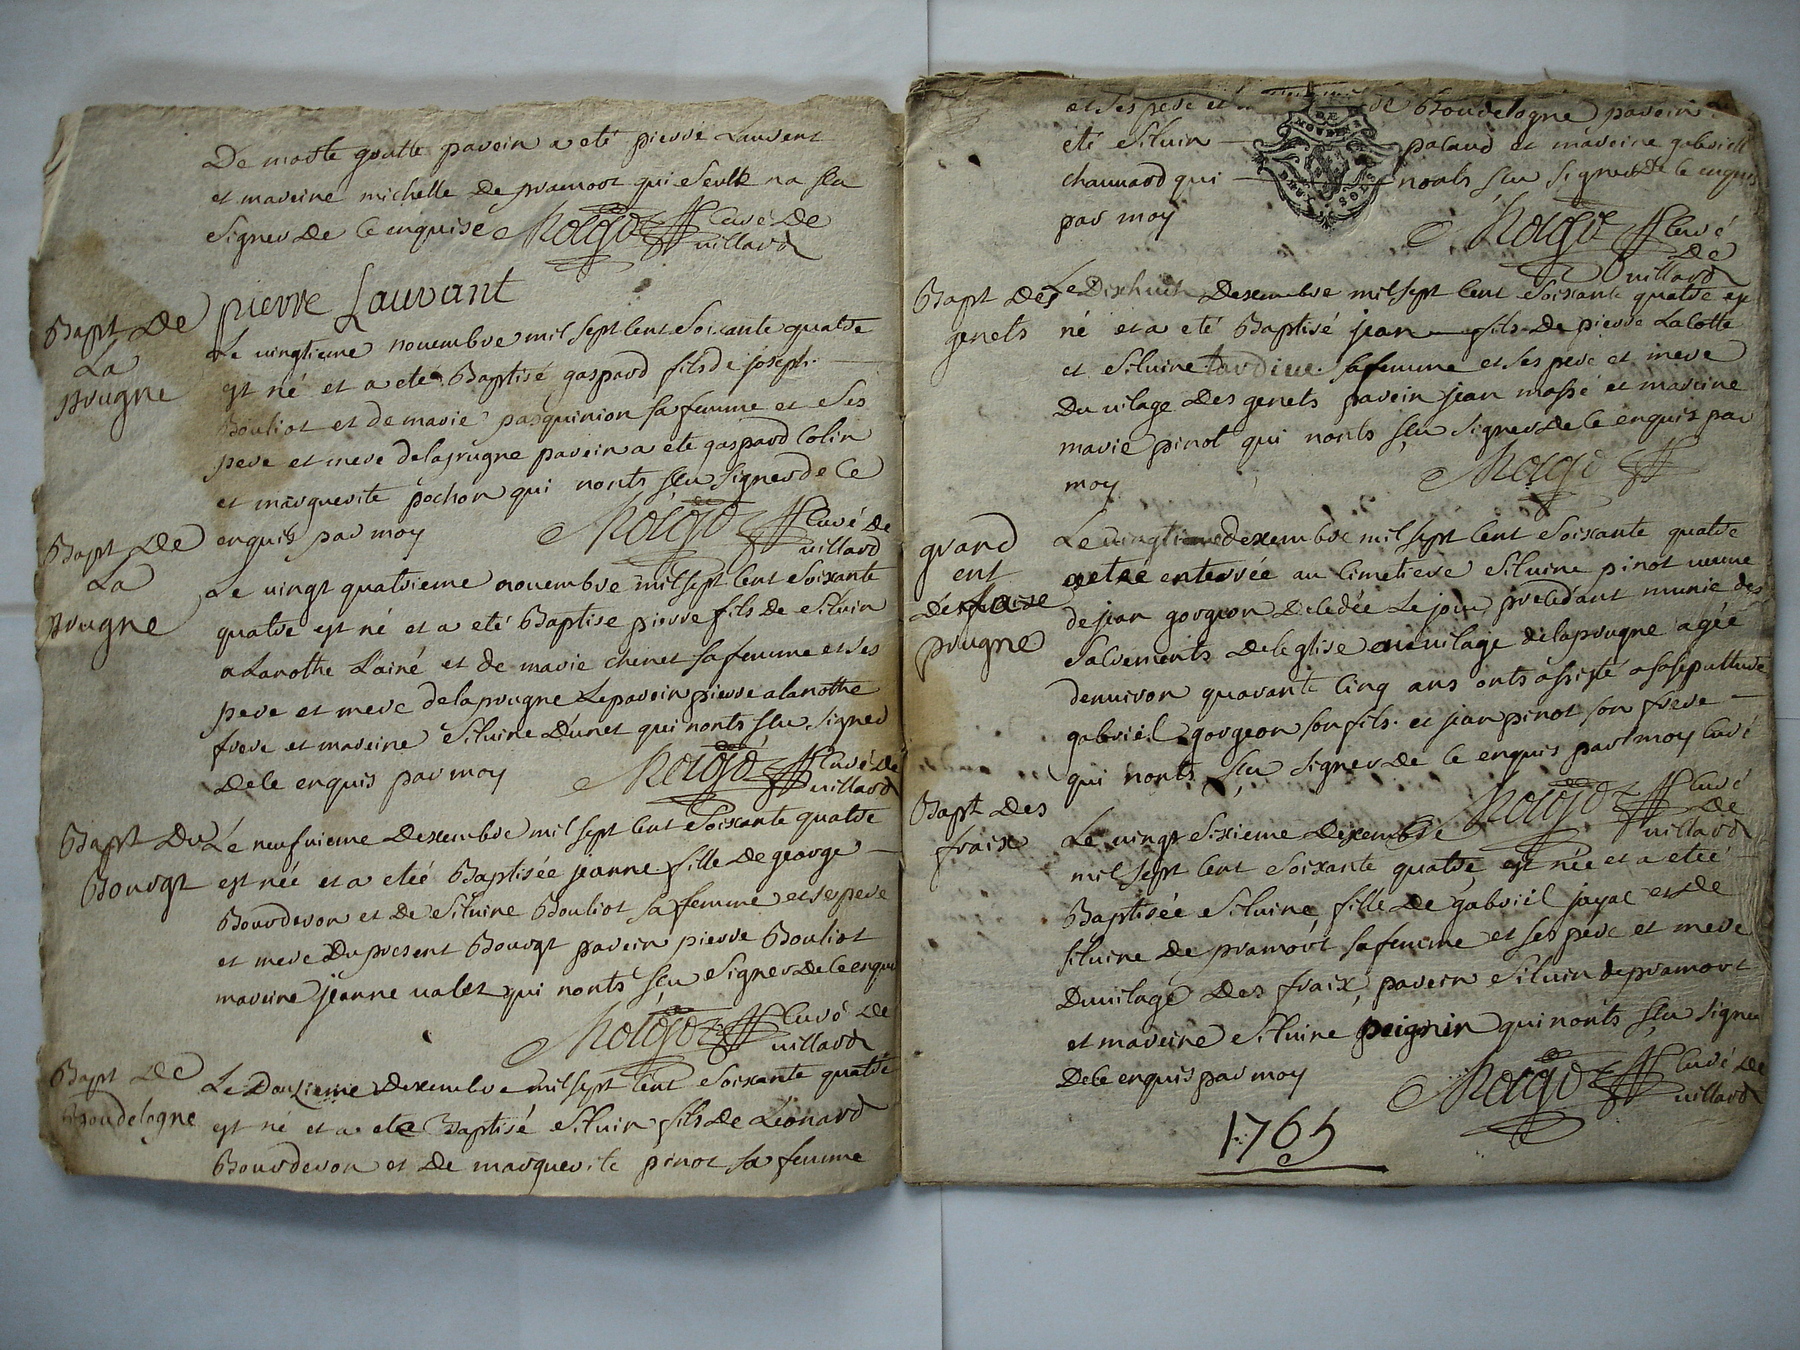 De morte goutte parein a eté pierre Laurent
et mareine michelle De pramort qui Seulle na sçu
signer De ce enquise curé De
uillard
pierre Lauvant
Bapt De
La
prugne
Le uingtieme nouembre mil sept cent Soixante quatre
est né et a eté Baptisé gaspard fils de joseph
Bouliot et de marie pasquinion sa femme et Ses
pere et mere delaprugne parein a eté gaspard Colin
et marguerite pochon qui nonts sçu signer de Ce
enquis par moy curé de
uillard
Bapt De
La
prugne
Le uingt quatrieme nouembre mil sept cent Soixante
quatre est né et a eté Baptise pierre fils de Siluin
alanothe L'ainé et de marie chenet sa femme et Ses
pere et mere delaprugne Le parein pierre alanothe
frere et mareine Siluine Dunet qui nonts sçu signer
De ce enquis par moy curé de
uillard
Bapt Du
Bourgt
Le neufuieme Dexembre mil sept cent Soixante quatre
est née et a eteé Baptisée jeanne fille de george
Bourderon et De Siluine Bouliot sa femme et ses pere
et mere Du present Bourgt parein pierre Bouliot
mareine jeanne ualet qui nonts sçu Signer De ce enqui
curé De
uillard
Bapt De
Boudelogne
Le Douzieme Dexembre mil sept cent Soixante quatre
est né et a eté Baptisé Siluin fils De Léonard
Bourderon et De marguerite pinot sa femme
et Ses pere et de Boudelogne parein a
eté Siluin palaud et mareine gabriell
chaumard qui nonts sçu Signer De ce enquis
par moy curé
De
uillard
Bapt Des
genets
Le Dixhuit Dexembre mil sept Cent Soixante quatre est
né et a eté Baptisé jean fils De pierre Lacotte
et Siluine tardiue sa femme et Ses pere et mere
Du uilage Des genets parein jean massé et mareine
marie pinot qui nonts sçu Signer De Ce enquis par
moy
grand
ent
prugne
Le uingtieme dexembre mil sept Cent Soixante quatre
aetré enterrée au Cimetiere Siluine pinot ueuue
de jean gorgeon Decedée Le jour precedant munie des
Sacrements De l'eglise au uilage delaprugne agée
denuiron quarante Cinq ans onts assisté a sa sepulture
gabriel gorgeon son fils et jean pinot son frere
qui nonts sçu Signer De Ce enquis par moy curé
curé
De
uillard
Bapt Des
fraix
Le uingt Sixieme Dexembre
mil sept Cent Soixante quatre est née et a eteé
Baptisée Siluine fille De gabriel jayac et De
Siluine De pramort sa femme et ses pere et mere
Du uilage Des fraix parein Siluin de pramort
et mareine Siluine peignin qui nonts sçu signer
De Ce enquis par moy curé De
uillard
1765